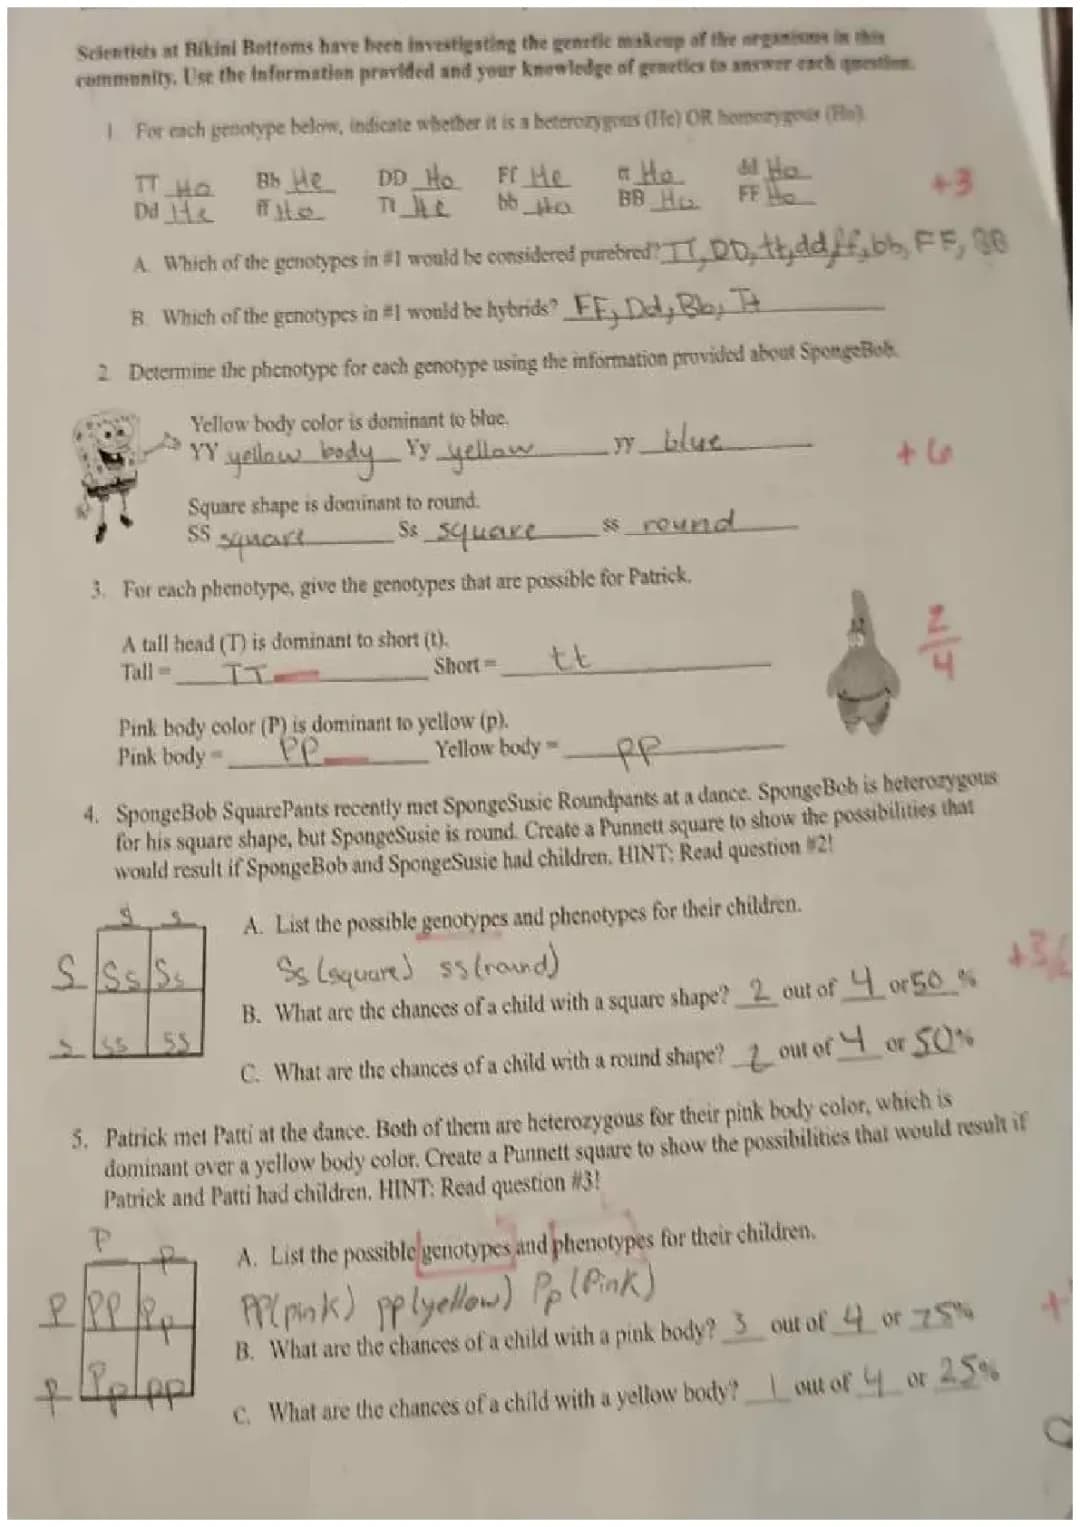 Scientists at Bikini Bottoms have been investigating the genetic makeup of the organisms in this
community. Use the information provided and your knowledge of genetics to answer each question.
1. For each genotype below, indicate whether it is a heterozygous (He) OR homozygous (Ho).
TT Ho Bb He DD Ho Ff He tt Ho dd Ho
Dd He ff Ho Tt He bb Ho BB Ho FF Ho
+3
A. Which of the genotypes in #1 would be considered purebred? TT, DD, tt, dd, ff, bb, FF, BB
B. Which of the genotypes in #1 would be hybrids? FF, Dd, Bb, Tt
2. Determine the phenotype for each genotype using the information provided about SpongeBob.
Yellow body color is dominant to blue.
YY yellow body Yy yellow yy blue
+6
Square shape is dominant to round.
SS square Ss square ss round
3. For each phenotype, give the genotypes that are possible for Patrick.
A tall head (T) is dominant to short (t).
Tall = TT Short = tt
2/4
Pink body color (P) is dominant to yellow (p).
Pink body = PP Yellow body = pp
4. SpongeBob SquarePants recently met SpongeSusie Roundpants at a dance. SpongeBob is heterozygous
for his square shape, but SpongeSusie is round. Create a Punnett square to show the possibilities that
would result if SpongeBob and SpongeSusie had children. HINT: Read question #2!
s s
A. List the possible genotypes and phenotypes for their children.
S Ss Ss
Ss (square) ss (round)
B. What are the chances of a child with a square shape? 2 out of 4 or 50 %
s ss ss
C. What are the chances of a child with a round shape? 2 out of 4 or 50%
5. Patrick met Patti at the dance. Both of them are heterozygous for their pink body color, which is
dominant over a yellow body color. Create a Punnett square to show the possibilities that would result if
Patrick and Patti had children. HINT: Read question #3!
P p
A. List the possible genotypes and phenotypes for their children.
P PP Pp
PP(pink) pp(yellow) Pp (Pink)
B. What are the chances of a child with a pink body? 3 out of 4 or 75%
p Pp pp
C. What are the chances of a child with a yellow body? 1 out of 4 or 25%